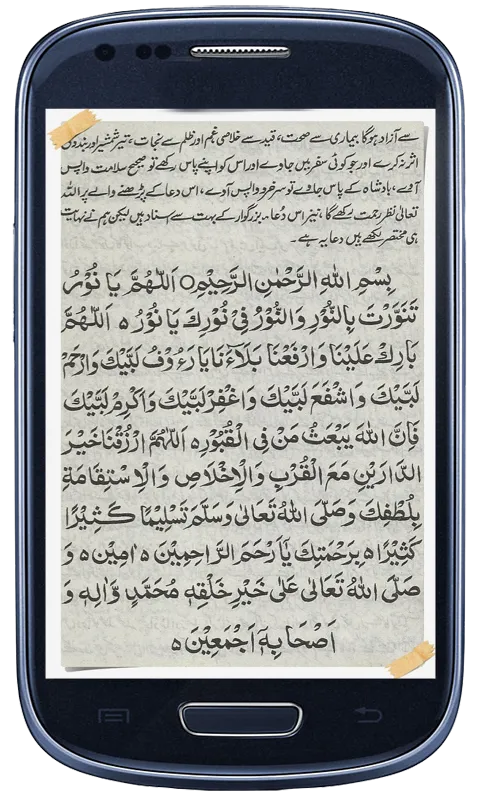 سے آزاد ہوگا بیماری سے صحت، قید سے خلاصی غم اور ظلم سے نجات، تیر شمشیر اور بندوق
اثر نہ کرے اور جو کوئی سفر میں جاوے اور اس کو اپنے پاس رکھے تو صحیح سلامت واپس
آوے، بادشاہ کے پاس جاوے تو سرخرو واپس آوے، اس دعا کے پڑھنے والے پر اللہ
تعالیٰ نظر رحمت رکھے گا، نیز اس دُعاء بزرگوار کے بہت سے اسناد ہیں لیکن ہم نے نہایت
ہی مختصر لکھے ہیں دعا یہ ہے۔
بِسْمِ اللهِ الرَّحْمٰنِ الرَّحِيْمِ○ اَللّٰهُمَّ يَا نُوْرُ
تَنَوَّرْتَ بِالنُّوْرِ وَالنُّوْرُ فِيْ نُوْرِكَ يَا نُوْرُ ه اَللّٰهُمَّ
بَارِكْ عَلَيْنَا وَارْفَعْنَا بَلَآءَنَا يَا رَءُوْفُ لَبَّيْكَ وَارْحَمْ
لَبَّيْكَ وَاشْفَعْ لَبَّيْكَ وَاغْفِرْ لَبَّيْكَ وَاكْرِمْ لَبَّيْكَ
فَاِنَّ اللهَ يَبْعَثُ مَنْ فِى الْقُبُوْرِ ه اَللّٰهُمَّ ارْزُقْنَا خَيْرَ
الدَّارَيْنِ مَعَ الْقُرْبِ وَالْاِخْلَاصِ وَالْاِسْتِقَامَةِ
بِلُطْفِكَ وَصَلَّى اللهُ تَعَالٰى وَسَلَّمَ تَسْلِيْمًا كَثِيْرًا
كَثِيْرًا ه بِرَحْمَتِكَ يَآ اَرْحَمَ الرَّاحِمِيْنَ ه اٰمِيْنَ ه وَ
صَلَّى اللهُ تَعَالٰى عَلٰى خَيْرِ خَلْقِهٖ مُحَمَّدٍ وَّاٰلِهٖ وَ
اَصْحَابِهٖٓ اَجْمَعِيْنَ ه